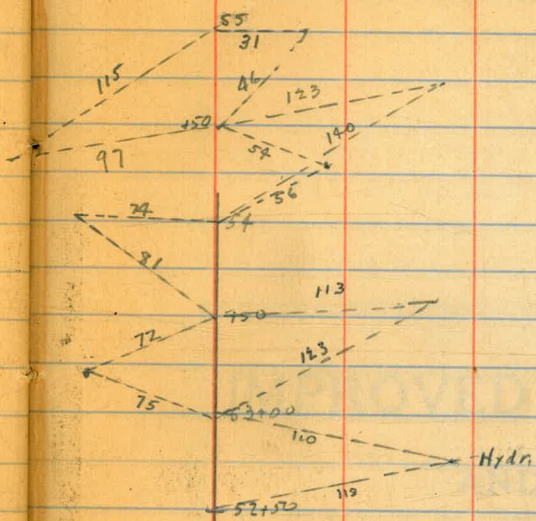 55
31
115
46
123
+50
140
97
54
56
74
54
81
113
+50
123
77
75
53+00
110
Hydr.
118
52+50